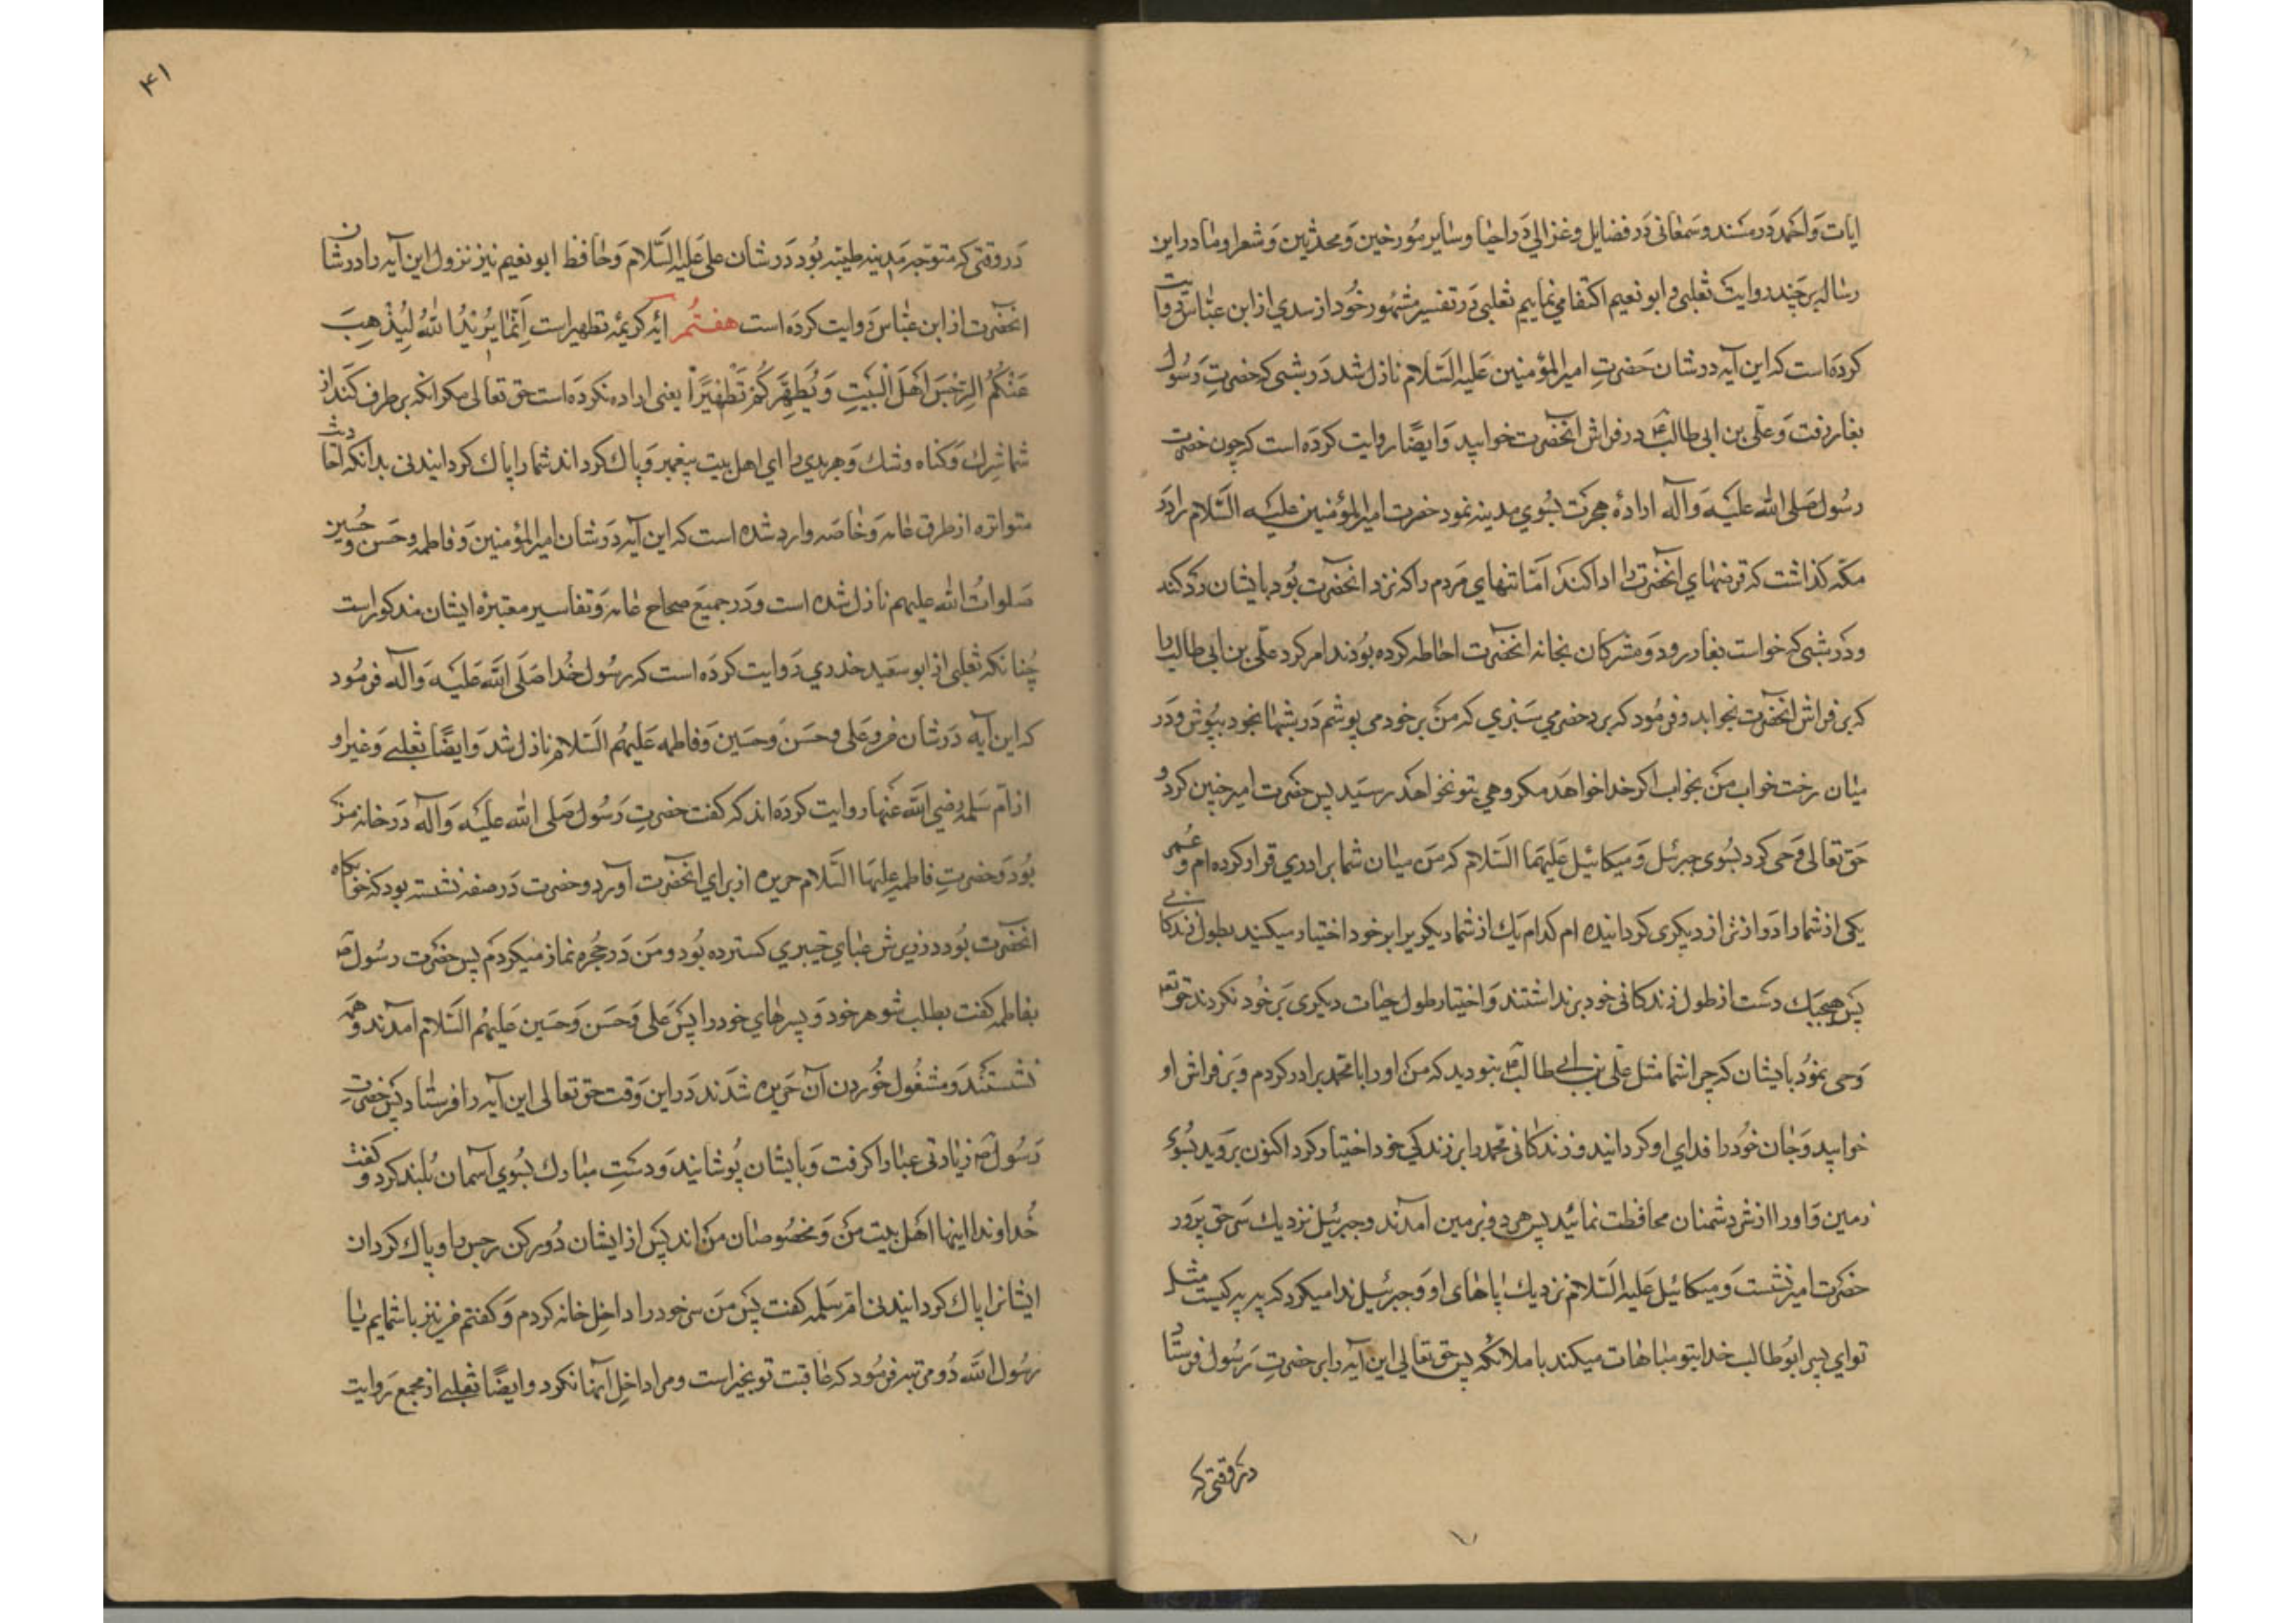 ایات وَاحمَد دَر مسند و سَمعانی دَر فضایل و غزالي دَر احیا و سایر مورخین وَ محدثین وَ شعرا و ما در این
رساله بر چند روایت ثعلبی و ابو نعیم اکتفا مي نماییم ثعلبی دَر تفسیر مشهور خُود از سدي از ابن عبّاس روایت
کردَه است که این آیه در شان حَضرتِ امیرالمؤمنین عَلیه السَّلام نازل شد دَر شبی که حضرتِ رَسُول
بغار رفت وَ علّی بن ابی طالبؑ در فراش آنحضرت خوابید وَ ایضًا روایت کردَه است که چون حضرت
رسُول صَلی الله علیَه وَ آله ارادۀ هجرت بسُوي مدینه نمود حضرت امیرالمؤمنین علیَه السَّلام را دَر
مکّه کذاشت که قرضهاي آنحضرت را ادا کند امَانتهاي مَردم را که نزد آنحضرت بُود بایشان رَد کند
و دَر شبی که خواست بغار رود وَ مشرکان بخانه آنحضرت احاطه کرده بُودند امر کرد علّی بن ابی طالب را
که بر فراش آنحضرت بخوابد و فرمُود که برد حضرمي سَبزي که مَن بر خود می پوشم دَر شبها بخود بپُوش وَ دَر
میان رخت خواب مَن بخواب اکر خدا خواهَد مکروهي بتو نخواهَد رسَید پس حضَرت امیر چنین کرد و
حَق تعالی وَحی کرد بسُوی جبرئل وَ میکائیل عَلیهَما السَّلام که مَن میان شما برادري قرار کرده ام و عُمر
یکی از شما را دَرازتر از دیکری کردانیده ام کدام یَك از شما دیکریرا بر خود اختیار میکنید بطول زندکانی
پَس هیچیَك دسَت از طول زندکانی خود برنداشتند وَ اختیار طول حیات دیکری بَر خُود نکردند حَق تع
وَحی نمُود بایشان که چرا شما مثل علّی بن ابي طالبؑ نبودید که مَن او را با محمد برادر کردم وَ بَر فراش او
خوابید وَ جان خُود را فدای او کردانید و زندکانی محمد را بر زندکي خود اختیار کرد اکنون بروید بسُوی
زمین وَ او را از شر دشمنان محافظت نمائید پس هر دو بزمین آمدند و جبرئیل نزدیك سَر حق پرور
حضَرت امیر نشست وَ میکائیل عَلیه السَّلام نزدیك پاهای او وَ جبرئیل ندا میکرد که به به کیست مثل
تو اي پسر ابوُطالب خدا بتو مباهات میکند با ملائکه پس حق تعالی این آیه را بر حضرتِ رَسُول فرستاد
دَر وقتی که
۴۱
دَر وقتی که متوجه مَدینه طیبه بُود دَر شان علی عَلیه السَّلام وَ حافظ ابو نعیم نیز نزول این آیه را در شان
آنحضَرت از ابن عبّاس رَوایت کردَه است هفتُم آیَه کریمَه تطهیر است اِنَّما یُریدُ اللهُ لِیُذْهِبَ
عَنْکُمُ الرِّجْسَ اَهْلَ الْبَیْتِ وَ یُطَهِّرَکُمْ تَطْهیرًا یعنی اراده نکردَه است حق تعالی مکر آنکه بر طرف کند از
شما شِرك وَ کناه و شك وَ هر بدي را اي اهل بیت پیغمبر وَ پاك کرداند شما را پاك کردانیدنی بدانکه احادیث
متواتره از طرق عامه وَ خاصَه وارد شده است که این آیه دَر شان امیرالمؤمنین وَ فاطمه و حَسن و حُسین
صَلواتُ الله علیهم نازل شده است و دَر جمیع صحاح عامه وَ تفاسیر معتبرۀ ایشان مذکور است
چُنانکه ثعلبی از ابو سعَید خدري رَوایت کردَه است که رسُول خُدا صَلَی الله عَلیَه وَ آله فرمُود
که این آیه دَر شان من و علی و حسَن وَ حسَین وَ فاطمه عَلیهُم السَّلام نازل شد وَ ایضًا ثعلبي وَ غیر او
از اُم سَلمه رضي الله عَنها روایت کردَه اند که کفت حضرتِ رَسُول صَلی الله عَلیَه وَ آله دَر خانه من
بُود وَ حضرتِ فاطمه علیهَا السَّلام حریره از براي آنحضَرت آورد و حضرت دَر صفه نشسته بود که خوابکاه
آنحضَرت بُود در زیرش عباي خیبري کسترده بُود و مَن دَر حجُره نماز میکردَم پس حضَرت رسُولؐ
بفاطمه کفت بطلب شوهر خود وَ پسرهاي خود را پَس عَلی وَ حسَن وَ حسَین عَلیهُم السَّلام آمدند و همَه
نشستند وَ مشغُول خُوردن آن حَریره شدَند دَر این وَقت حق تعالی این آیه را فرستاد پَس حضرتِ
رَسُولؐ زیادتی عبا را کرفت وَ بایشان پُوشانید وَ دسَتِ مبارك بسُوي آسمان بُلند کرد و کفت
خُداوندا اینها اهَل بیت من وَ مخصُوصان مَن اند پَس از ایشان دُور کن رجس را و پاك کردان
ایشانرا پاك کردانیدنی ام سَلمه کفت پَس مَن سر خود را داخِل خانه کردم وَ کفتم من نیز با شمایم یا
رسُول الله دُو مرتبه فرمُود که عاقبت تو بخیر است و مرا داخِل آنها نکرد و ایضًا ثعلبي از مجمع رَوایت